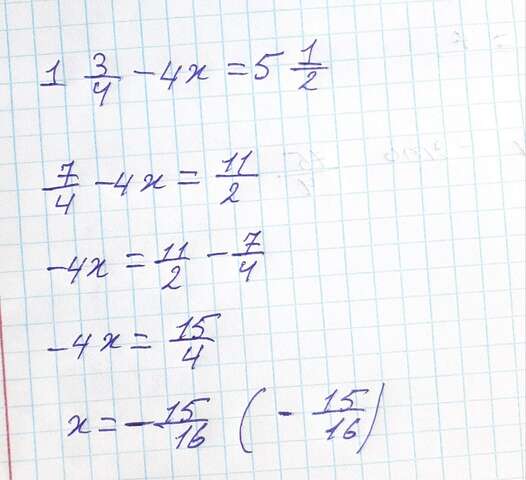 1 3/4 - 4x = 5 1/2
7/4 - 4x = 11/2
-4x = 11/2 - 7/4
-4x = 15/4
x = - 15/16 (- 15/16)